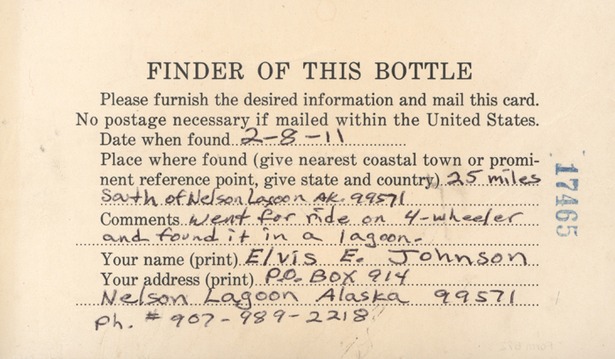 FINDER OF THIS BOTTLE
Please furnish the desired information and mail this card.
No postage necessary if mailed within the United States.
Date when found 2-8-11
Place where found (give nearest coastal town or promi-
nent reference point, give state and country) 25 miles
South of Nelson Lagoon AK. 99571
Comments went for ride on 4-wheeler
and found it in a lagoon.
Your name (print) Elvis E. Johnson
Your address (print) P.O. BOX 914
Nelson Lagoon Alaska 99571
Ph. # 907-989-2218
17465